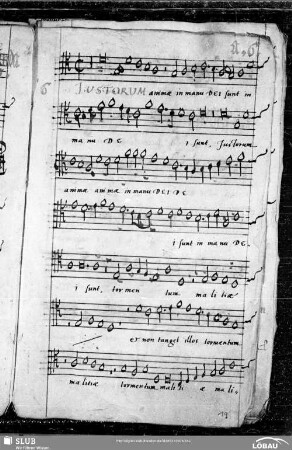 6
JUSTORUM animæ in manu DEI sunt in
manu DE i sunt, Justorum
animæ animæ in manu DEI DE
i sunt in manu DE
i sunt, tormen tum malitiæ
et non tanget illos tormentum
malitiæ tormentum maliti æ mali
SLUB
Wir führen Wissen.
LOBAU